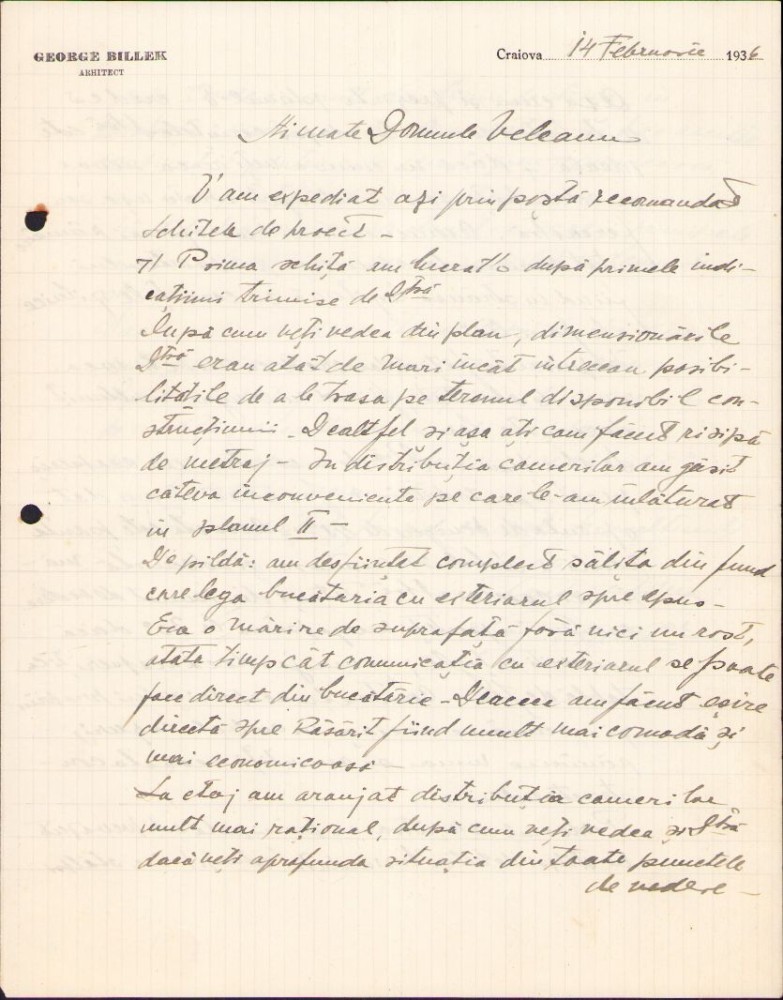 GEORGE BILLEK
ARHITECT
Craiova 14 Februarie 1936
Stimate Domnule Veleanu
V'am expediat azi prin poștă recomandat
schitele de proect –
I Prima schiță am lucrat'o după primele indi-
cațiuni trimise de Dtră
După cum veți vedea din plan, dimensionările
Dtră erau atât de mari încât întreceau posibi-
litățile de a le trasa pe terenul disponibil con-
strucțiunii – Dealtfel și așa ați cam făcut risipă
de metraj – In distribuția camerilor am găsit
câteva inconveniente pe care le-am înlăturat
in planul II –
De pildă: am desființat complect sălița din fund
care lega bucătaria cu exteriorul spre apus –
Era o mărire de suprafață fără nici un rost,
atata timp cât comunicația cu exteriorul se poate
face direct din bucătărie – Deaceea am făcut eșire
directă spre Răsărit fiind mult mai comodă și
mai economicoasă
La etaj am aranjat distribuția camerilor
mult mai rațional, după cum veți vedea și Dtră
dacă veți aprofunda situația din toate punctele
de vedere –